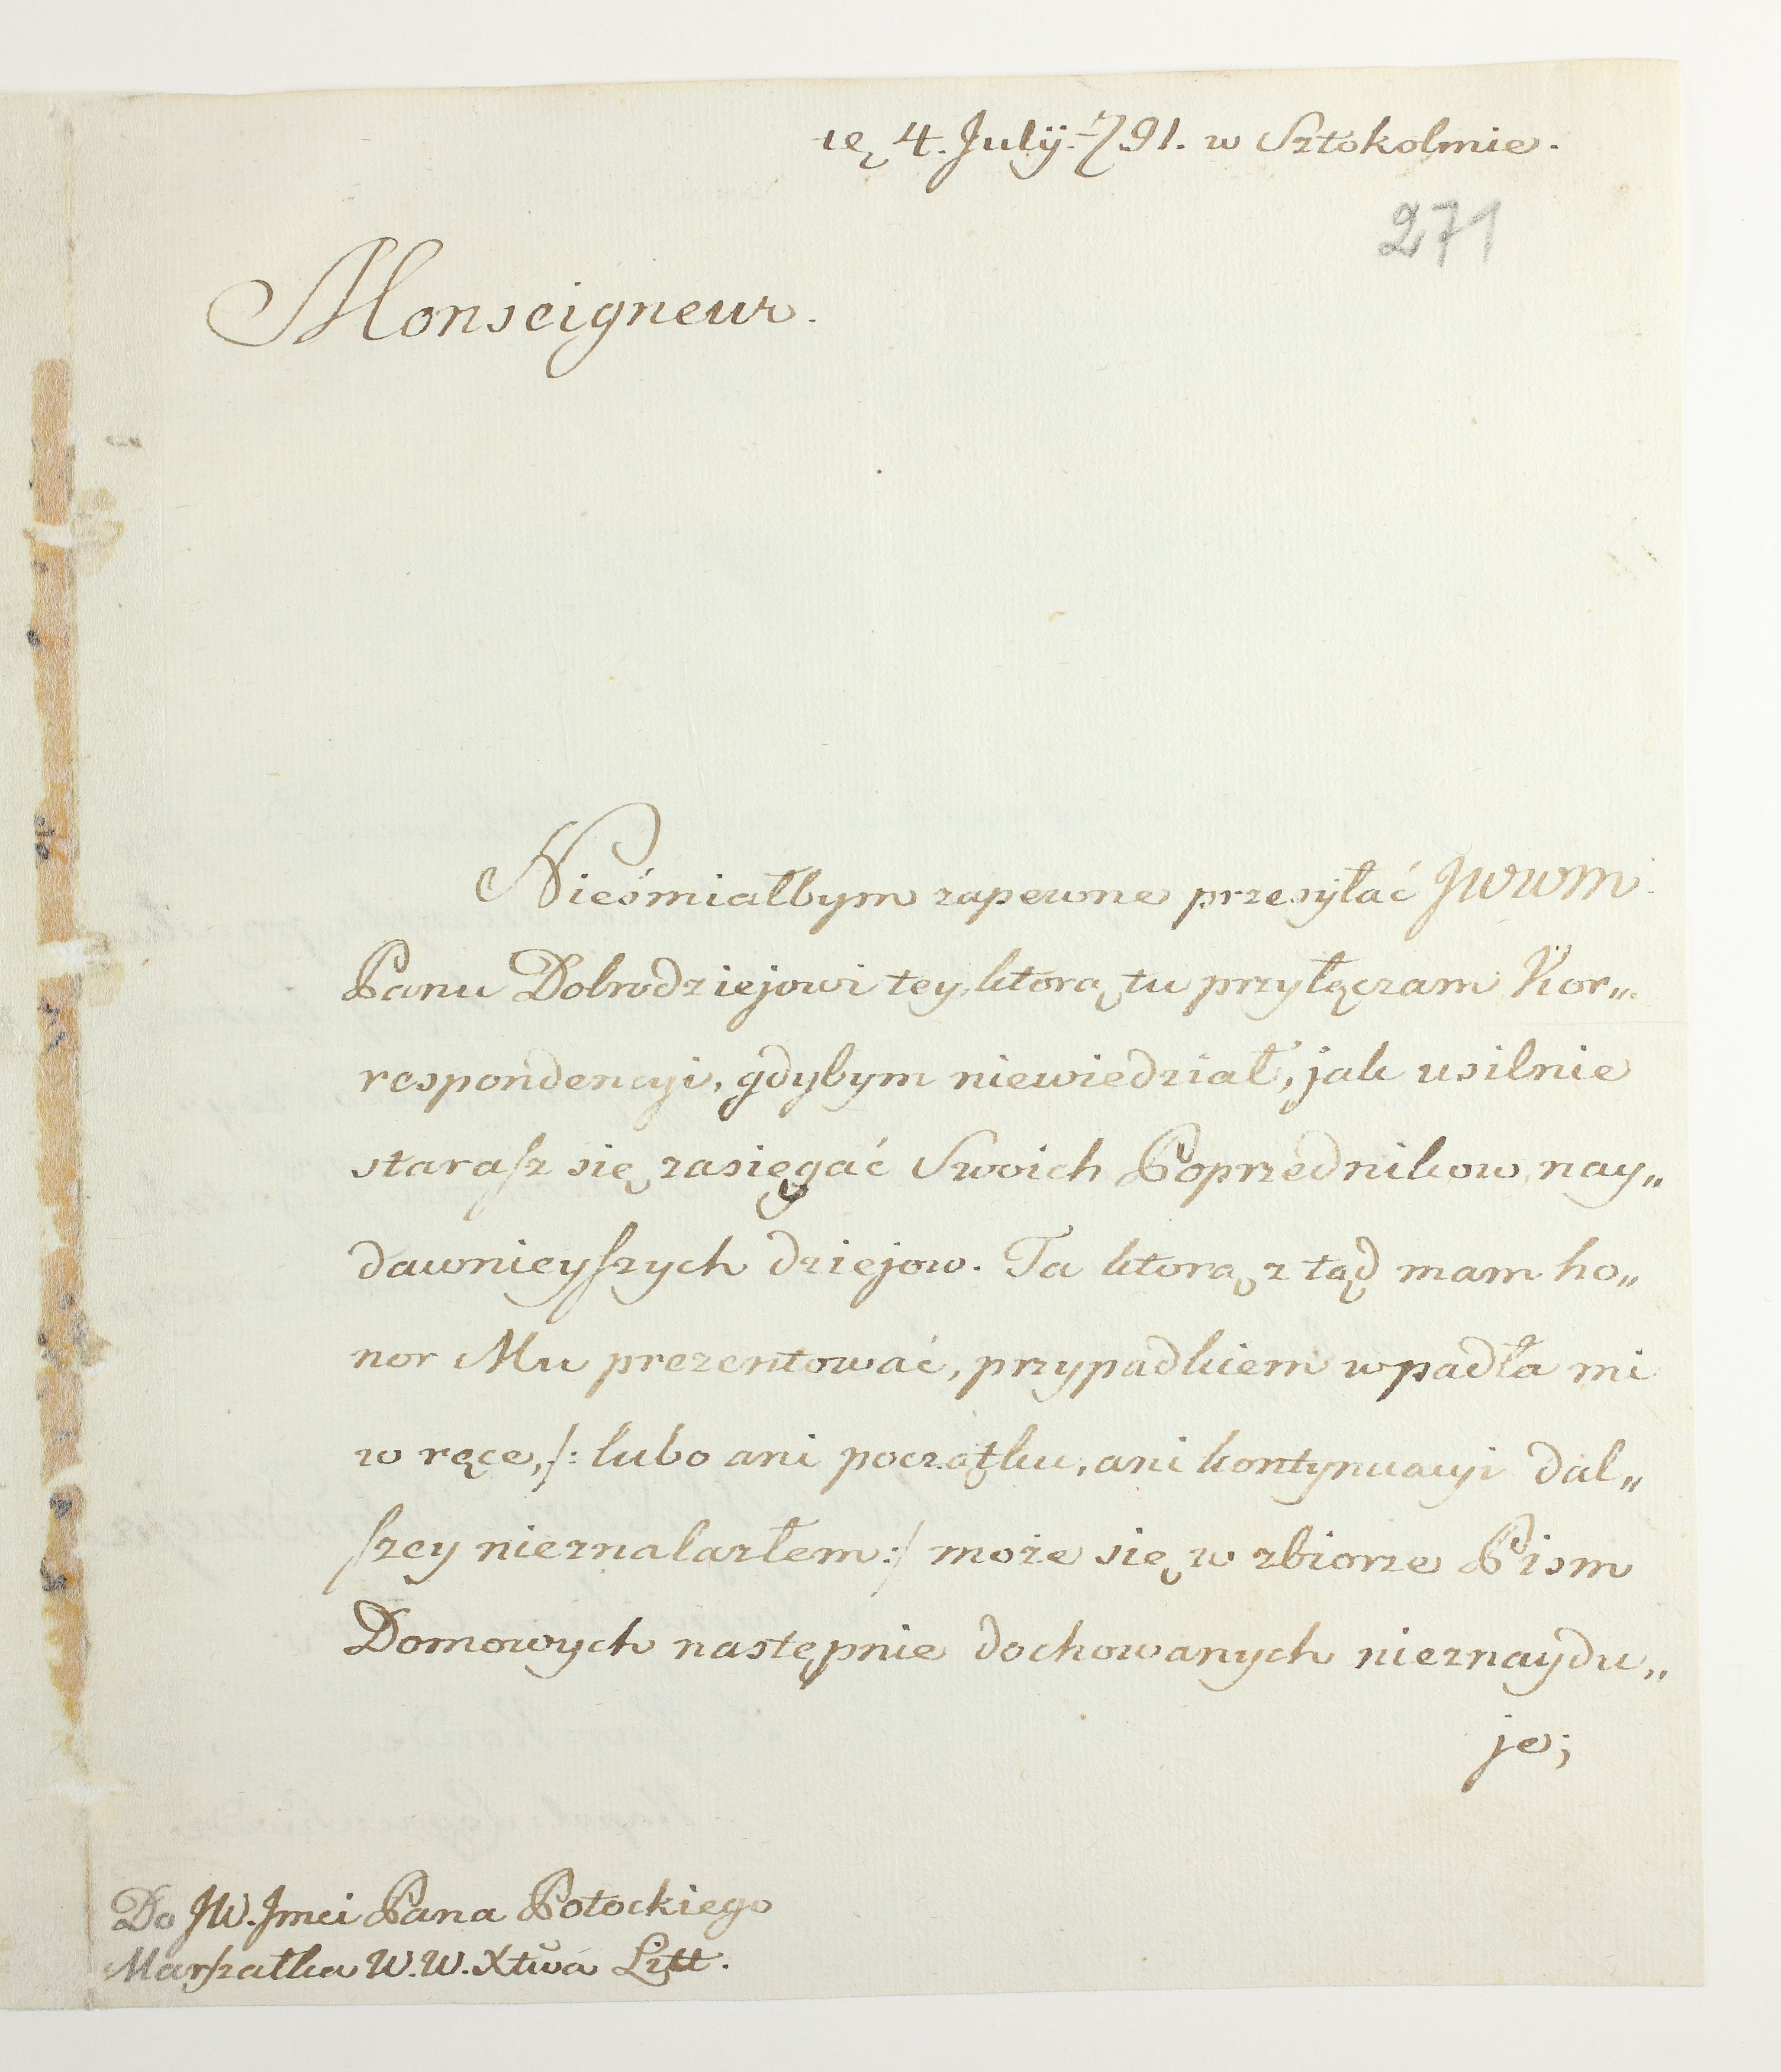 4. Julÿ. 791. w Sztokolmie.
271
Monseigneur.
Nieśmiałbym zapewne przesyłać JWWM
Panu Dobrodziejowi tey, ktorą tu przyłączam Kor„
respondencyi, gdybym niewiedział, jak usilnie
starasz się zasięgać Swoich Poprzednikow nay„
dawnieyszych dziejow. Ta ktorą z tąd mam ho„
nor Mu prezentować, przypadkiem wpadła mi
w ręce, /: lubo ani początku, ani kontynuacyi dal„
szey nieznalazłem :/ może się w zbiorze Pism
Domowych następnie dochowanych nieznaydu„
je;
Do JW. Jmci Pana Potockiego
Marszałka W. W. Xtwa Litt.